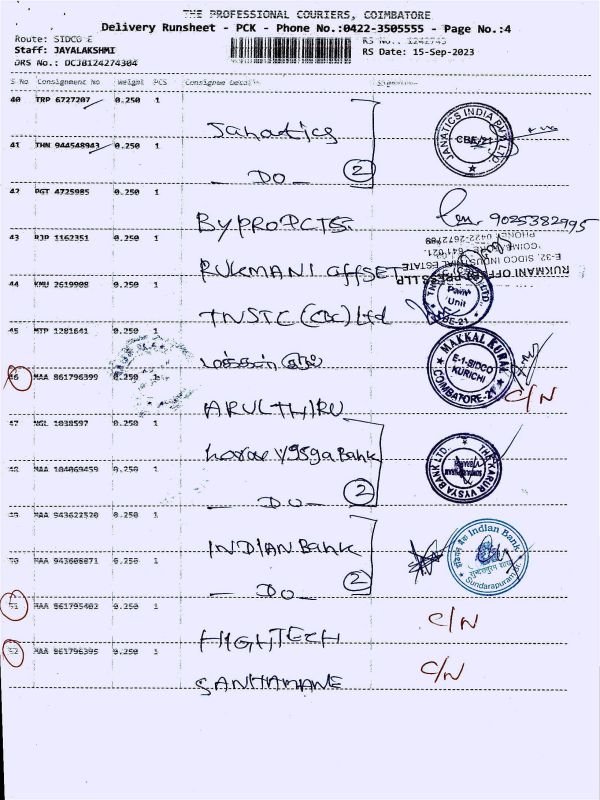 THE PROFESSIONAL COURIERS, COIMBATORE
Delivery Runsheet - PCK - Phone No.:0422-3505555 - Page No.:4
Route: SIDCO E
Staff: JAYALAKSHMI
DRS No.: DCJ0124274304
RS No.: 1242743
RS Date: 15-Sep-2023
S No Consignment No Weight PCS Consignee Details Signature
40 TRP 6727207 0.250 1
Janatics
JANATICS INDIA PVT. LTD. CBE/21
41 THN 944548943 0.250 1
DO
2
42 PGT 4725985 0.250 1
BYPROPCTS
9025382995
43 RJP 1162351 0.250 1
RUKMANI OFFSET
RUKMANI OFFSET PRESS LLP
E-32, SIDCO INDUSTRIAL ESTATE
COIMBATORE - 641 021.
PHONE: 0422-2672789
44 KMU 2619908 0.250 1
TNSTC (CBE) Ltd
Paint Unit
CBE-21
45 MTP 1281641 0.250 1
மக்கள் குரல்
MAKKAL KURAL E-1-SIDCO KURICHI COIMBATORE-21
46 MAA 861796399 0.250 1
ARULTHIRU
C/N
47 NGL 1038597 0.250 1
karur Vysya Bank
THE KARUR VYSYA BANK LTD.
48 MAA 184069459 0.250 1
DO
2
49 MAA 943622520 0.250 1
INDIAN Bank
इंडियन बैंक Indian Bank
Sundarapuram
50 MAA 943608071 0.250 1
DO
2
51 MAA 861795402 0.250 1
HIGHTECH
C/N
52 MAA 861796395 0.250 1
C/N